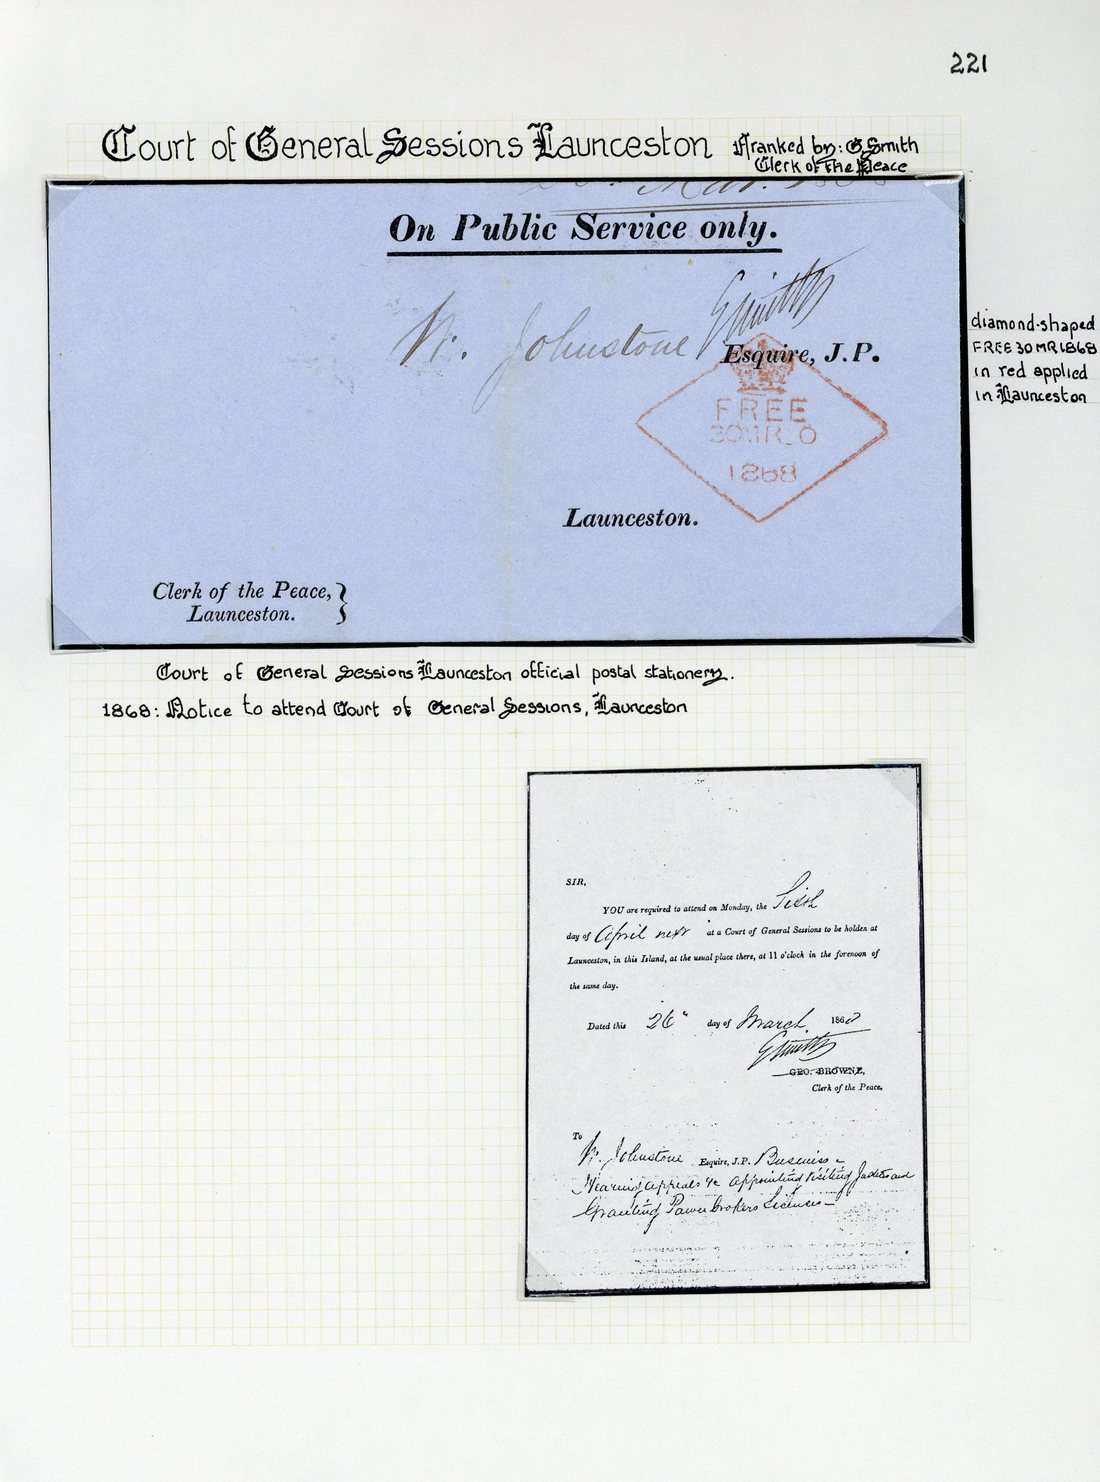 221
Court of General Sessions Launceston Franked by: G Smith
Clerk of the Peace
On Public Service only.
W. Johnstone GSmith
Esquire, J.P.
diamond-shaped
FREE 30 MR 1868
in red applied
in Launceston
FREE
30MR_O
1868
Launceston.
Clerk of the Peace,
Launceston.
Court of General Sessions Launceston official postal stationery.
1868: Notice to attend Court of General Sessions, Launceston
SIR,
YOU are required to attend on Monday, the Sixth
day of April next at a Court of General Sessions to be holden at
Launceston, in this Island, at the usual place there, at 11 o'clock in the forenoon of
the same day.
Dated this 26" day of March 1868
GSmith
GEO. BROWNE,
Clerk of the Peace.
To
W. Johnstone Esquire, J.P. Business -
Hearing appeals &c appointing Visiting Justices and
Granting Pawnbrokers Licenses -